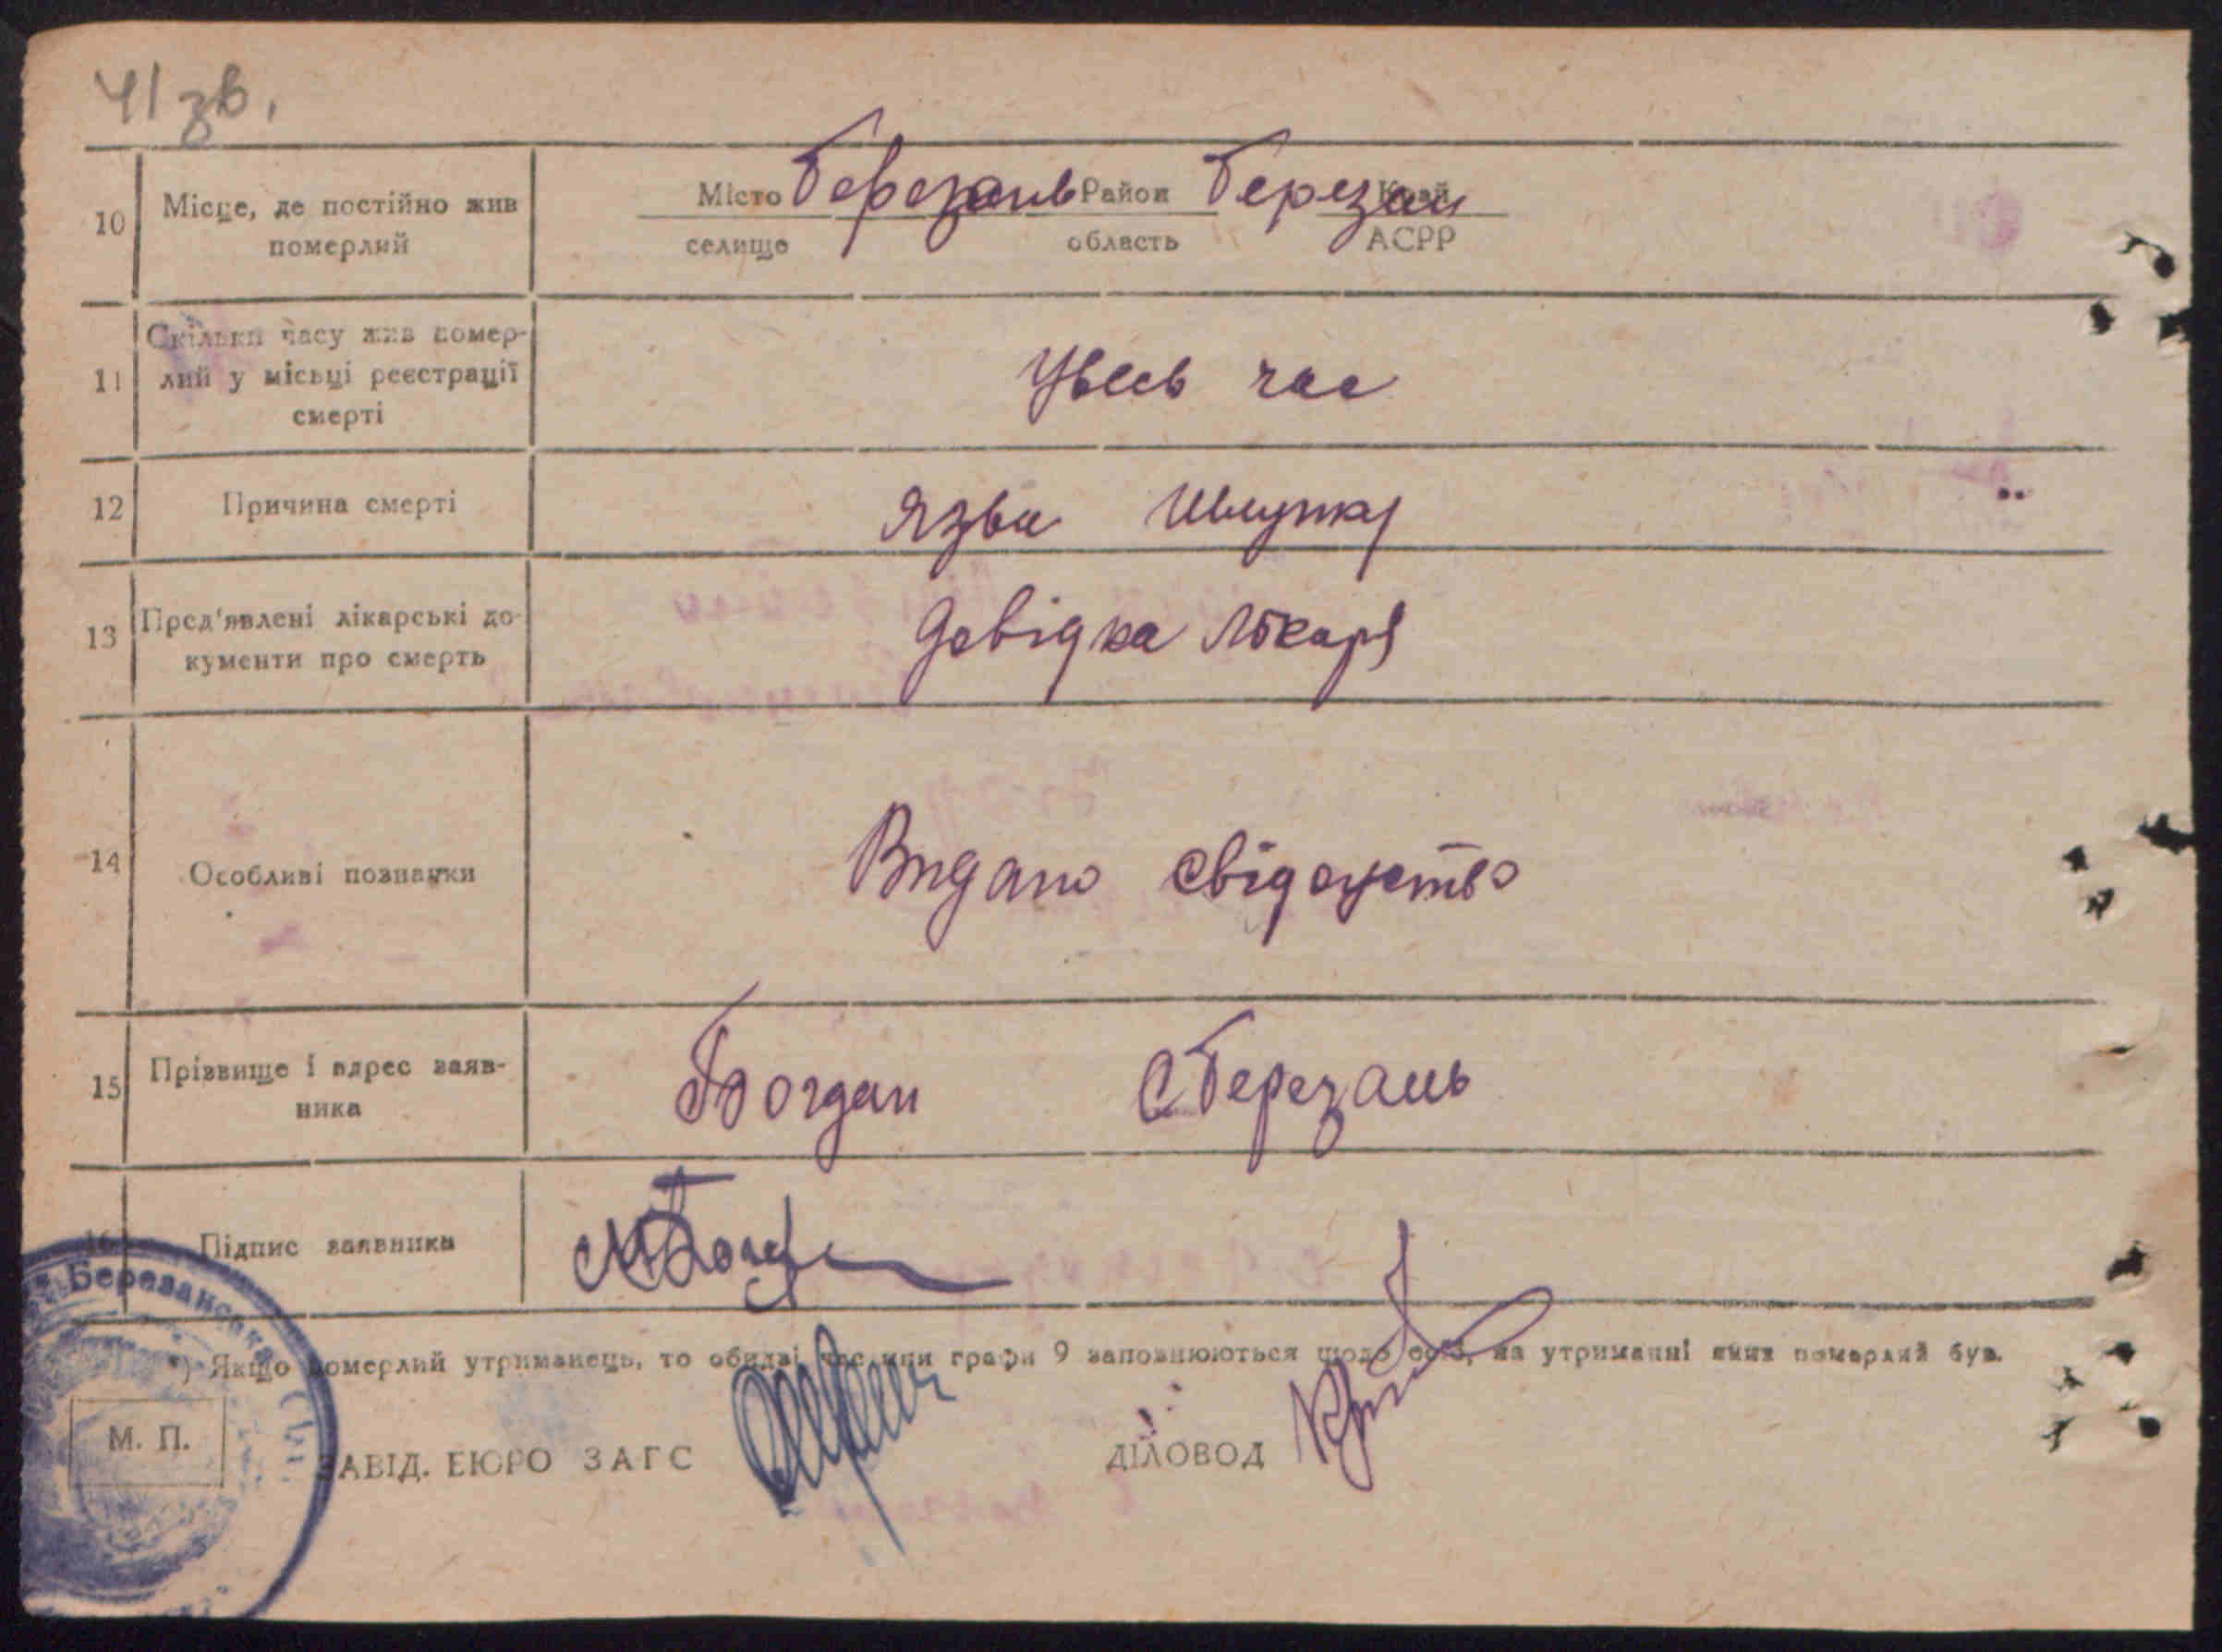 41 зв.
10 Місце, де постійно жив померлий
Місто Березань Район Березан Край
селище область АСРР
11 Скільки часу жив помер-
лий у місьці реєстрації
смерті
Увесь час
12 Причина смерті
Язва Шлунку
13 Пред'явлені лікарські до-
кументи про смерть
Довідка Лікаря
14 Особливі познанки
Видано свідоцтво
15 Прізвище і адрес заяв-
ника
Богдан С Березань
16 Підпис заявника
МБогдан
Березанська
*) Якщо померлий утриманець, то обидві частини графи 9 заповнюються щодо осіб, на утриманні яких померлий був.
М. П.
ЗАВІД. БЮРО ЗАГС
ДІЛОВОД